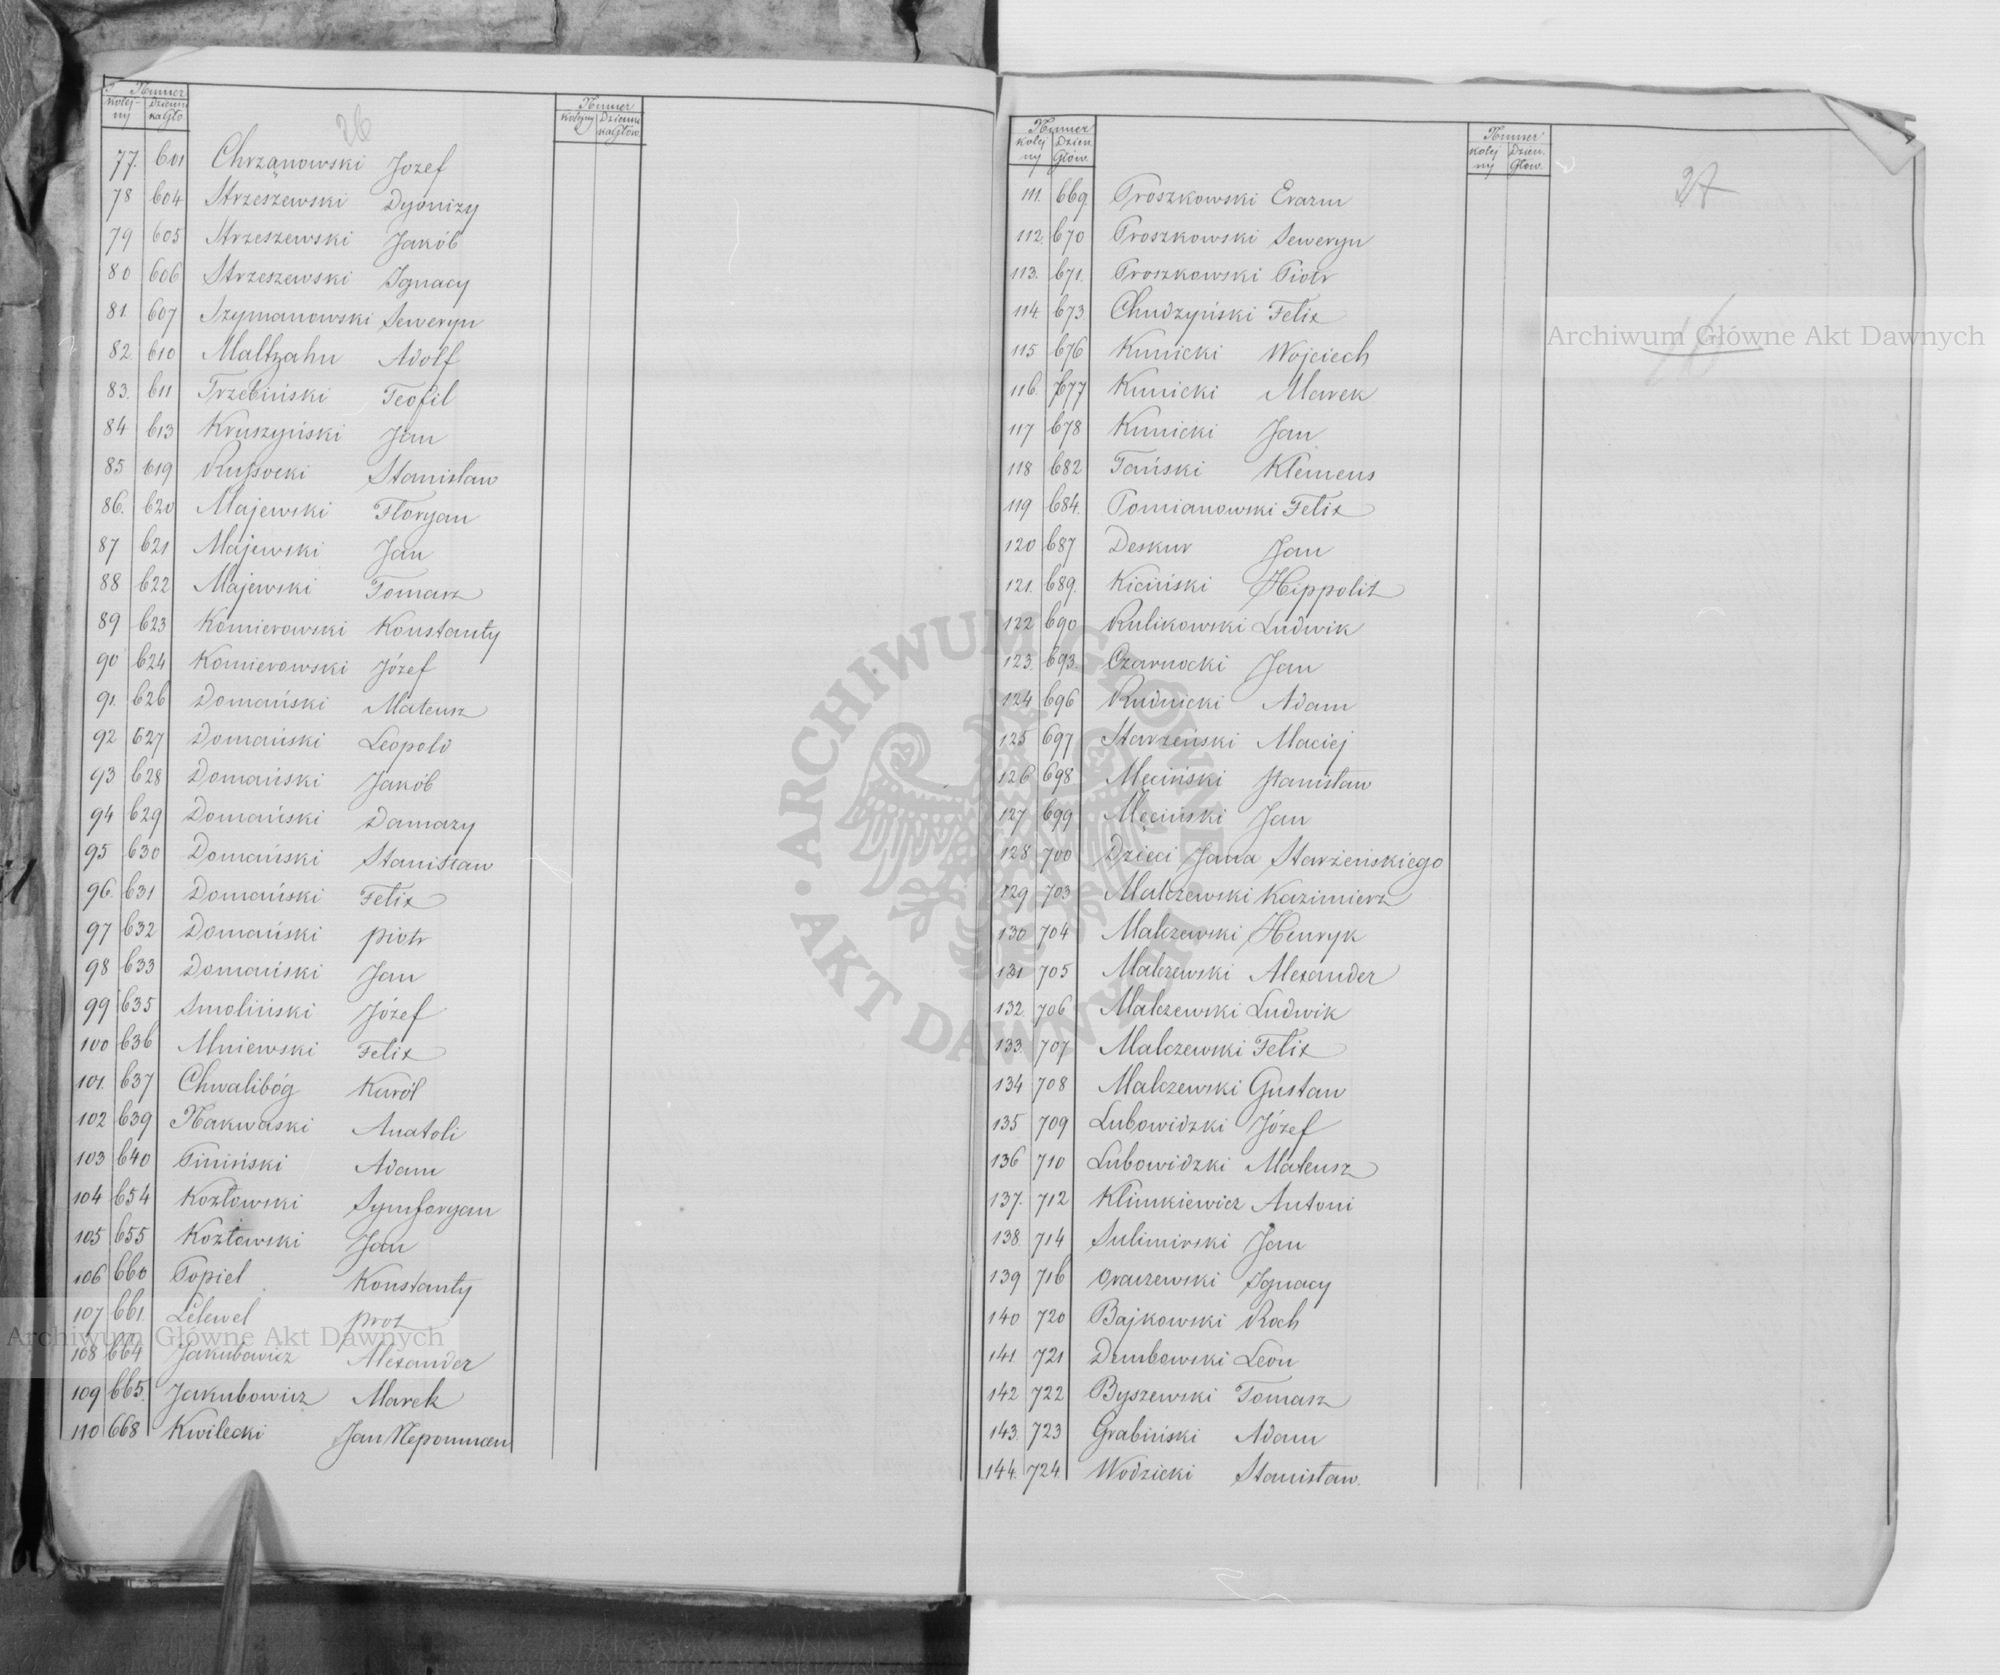 26
Numer
Numer
Kolejny Dziennika Głó
Kolejny Dziennika Głów
77. 601 Chrzanowski Jozef
78 604 Strzeszewski Dyonizy
79 605 Strzeszewski Jakób
80 606 Strzeszewski Ignacy
81. 607 Szymanowski Seweryn
82. 610 Maltzahn Adolf
83. 611 Trzebiński Teofil
84 613 Kruszyński Jan
85 619 Russocki Stanisław
86. 620 Majewski Floryan
87 621 Majewski Jan
88 622 Majewski Tomasz
89 623 Komierowski Konstanty
90 624 Komierowski Józef
91. 626 Domański Mateusz
92 627 Domański Leopold
93 628 Domański Jakób
94 629 Domański Damazy
95 630 Domański Stanisław
96. 631 Domański Felix
97 632 Domański Piotr
98 633 Domański Jan
99 635 Smoliński Józef
100 636 Mniewski Felix
101. 637 Chwalibóg Karól
102 639 Nakwaski Anatoli
103 640 Piniński Adam
104 654 Kozłowski Symforyan
105 655 Kozłowski Jan
106 660 Popiel Konstanty
107 661. Lelewel Prot
108 664 Jakubowicz Alexander
109 665. Jakubowicz Marek
110 668 Kwilecki Jan Nepomucen
27
Numer
Numer
Kolejny Dzien. Głów.
Kolejny Dzien. Głow.
111. 669. Proszkowski Erazm
112. 670 Proszkowski Seweryn
113. 671. Proszkowski Piotr
114. 673 Chudzyński Felix
115 676 Kunicki Wojciech
116. 677 Kunicki Marek
117 678 Kunicki Jan
118 682 Tański Klemens
119 684. Pomianowski Felix
120 687 Deskur Jan
121. 689. Kiciński Hippolit
122 690 Rulikowski Ludwik
123. 693. Czarnocki Jan
124 696 Rudnicki Adam
125 697 Starzeński Maciej
126 698 Męciński Stanisław
127 699 Męciński Jan
128 700 Dzieci Jana Starzeńskiego
129 703 Malczewski Kazimierz
130 704 Malczewski Henryk
131 705 Malczewski Alexander
132. 706 Malczewski Ludwik
133. 707 Malczewski Felix
134 708 Malczewski Gustaw
135 709 Lubowidzki Józef
136 710 Lubowidzki Mateusz
137. 712 Klimkiewicz Antoni
138. 714 Sulimirski Jan
139 716 Oraczewski Ignacy
140 720 Bajkowski Roch
141. 721 Dembowski Leon
142 722 Byszewski Tomasz
143. 723 Grabiński Adam
144. 724. Wodzicki Stanisław.
Archiwum Główne Akt Dawnych
Archiwum Główne Akt Dawnych
ARCHIWUM GŁÓWNE · AKT DAWNYCH ·